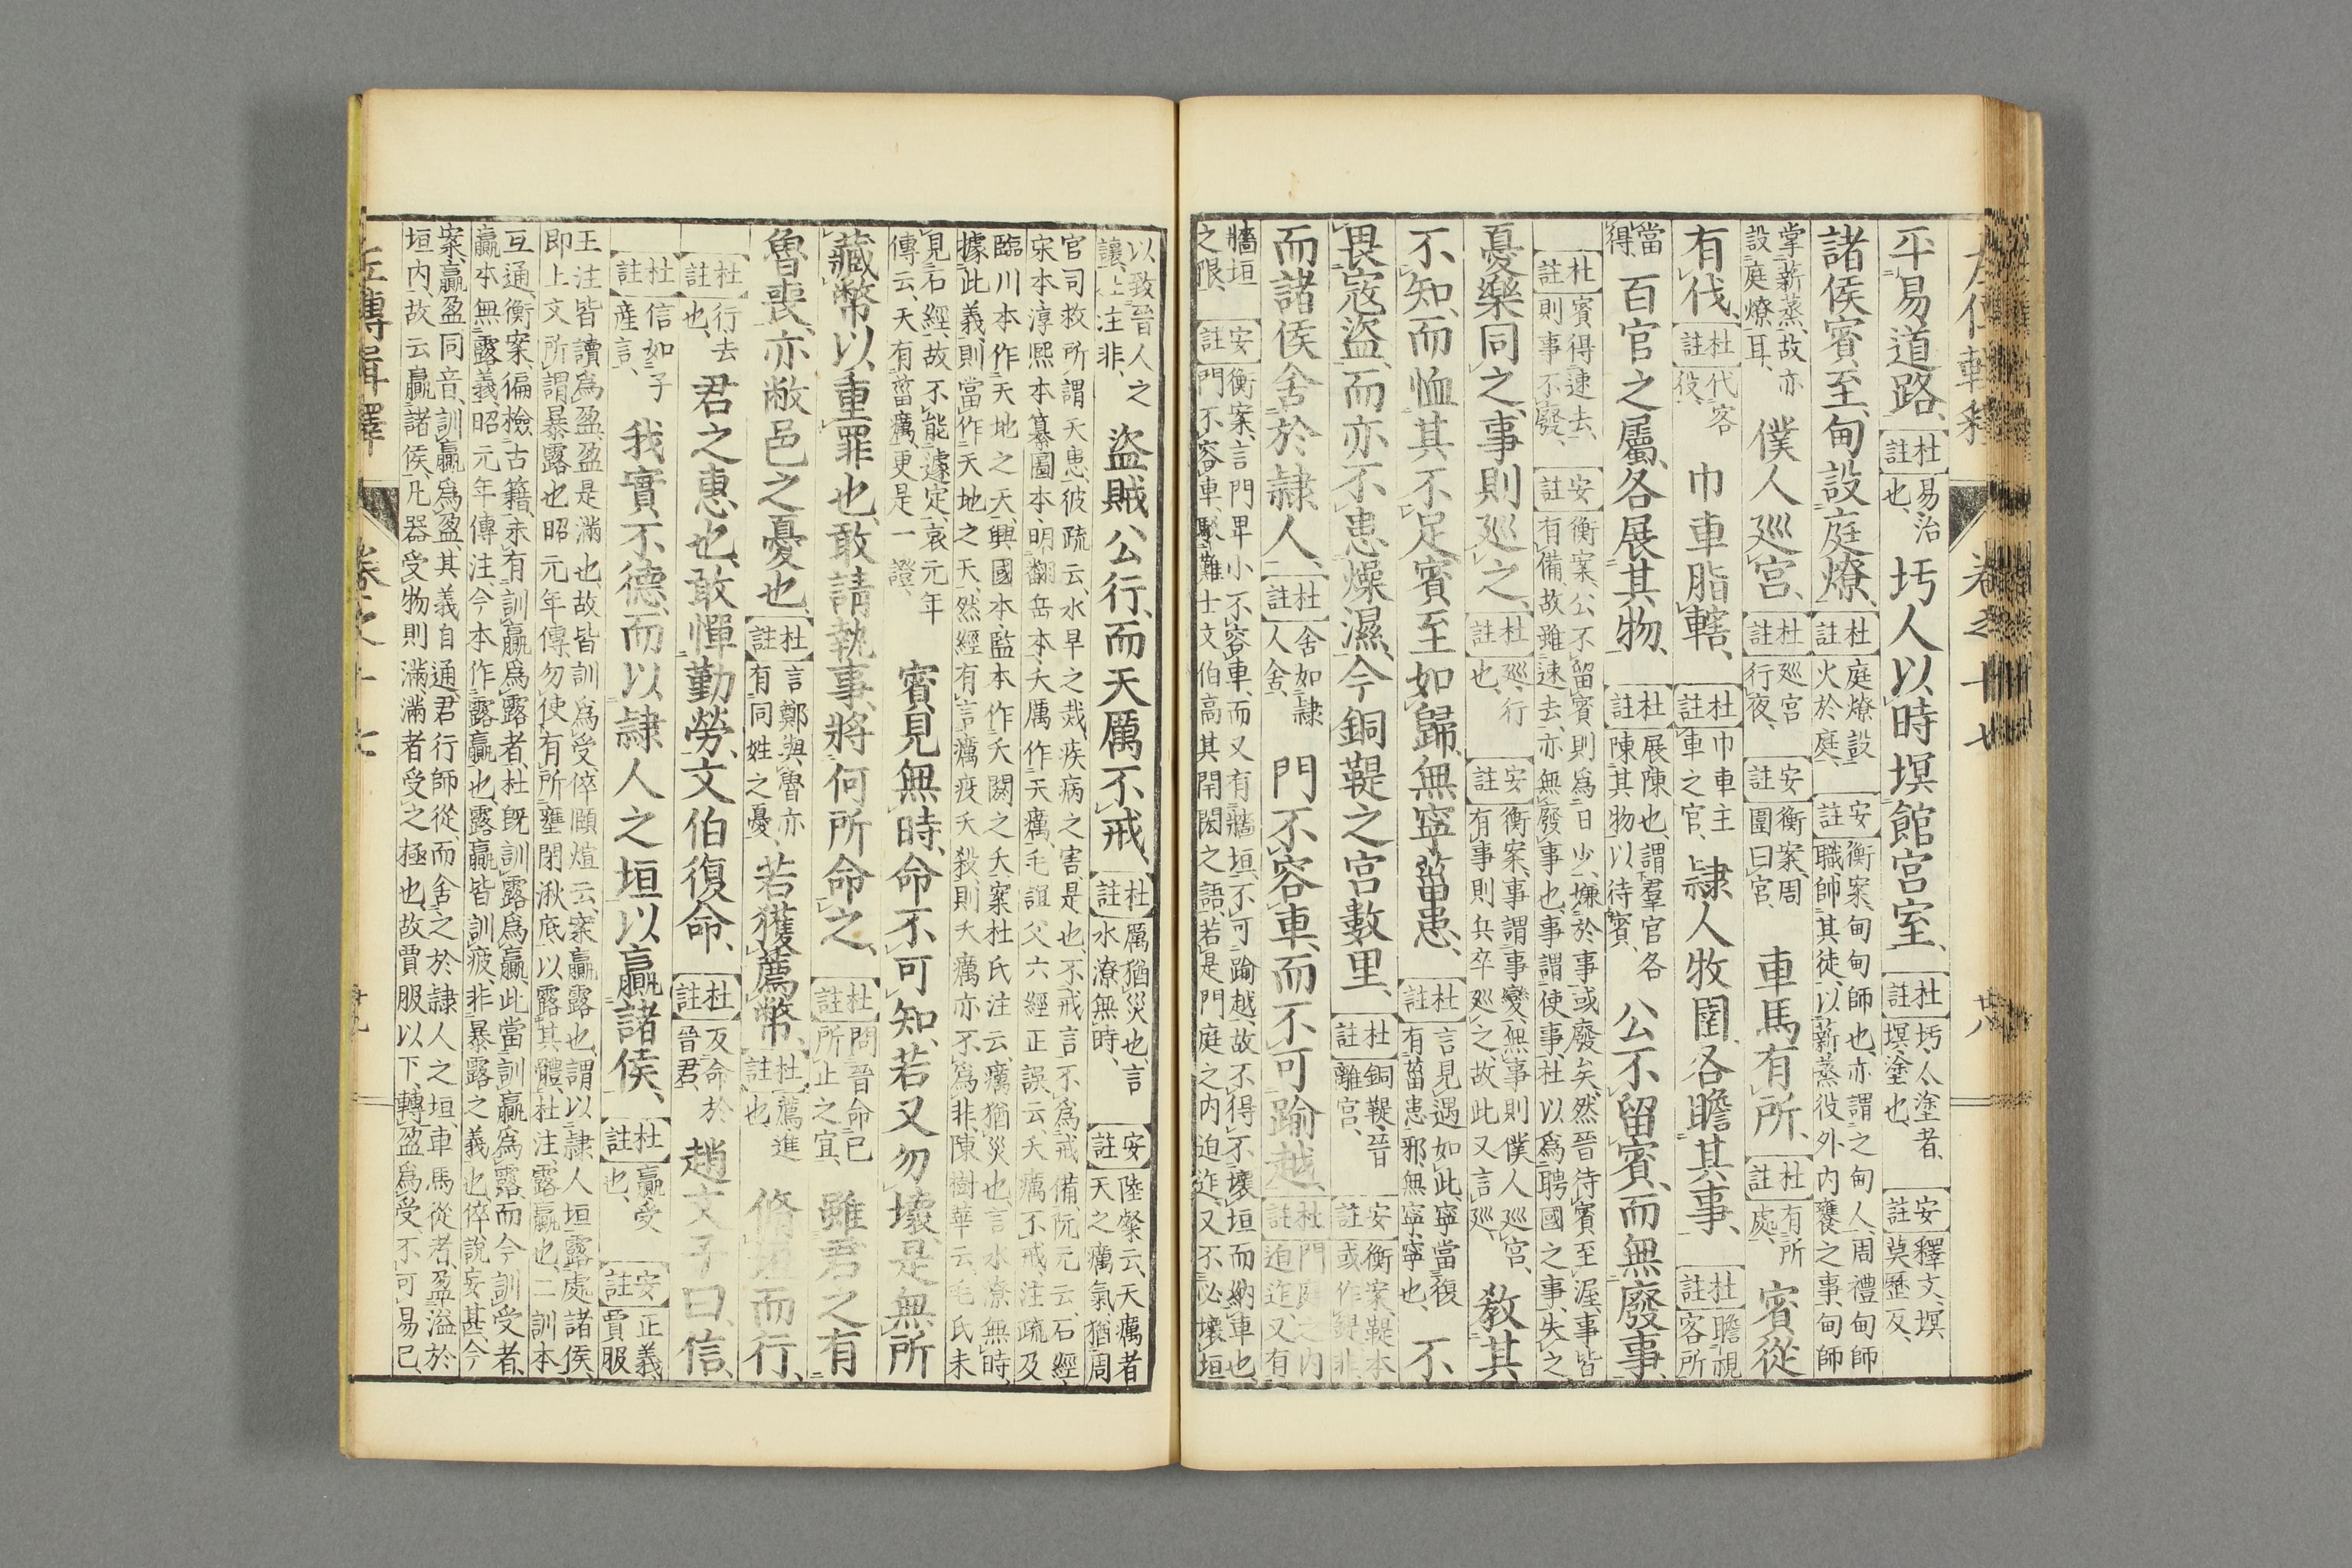 左傳輯釋 卷之十七 廿八
平易道路、【杜註】易治也、圬人以時塓館宮室、【杜註】圬人塗者、塓塗也、【安註】釋文、塓莫歷反、
諸侯賓至、甸設庭燎、【杜註】庭燎設火於庭、【安註】衡案、甸甸師也、亦謂之甸人、周禮甸師職、師其徒以薪蒸役外內饔之事、甸師
掌薪蒸、故亦設庭燎耳、僕人巡宮、【杜註】巡宮行夜、【安註】衡案、周圍曰宮、車馬有所、【杜註】有所處、賓從
有伐、【杜註】代客役、巾車脂轄、【杜註】巾車主車之官、隸人牧圉、各瞻其事、【杜註】瞻視客所
當得、百官之屬、各展其物、【杜註】展陳也、謂羣官各陳其物以待賓、公不留賓、而無廢事、
【杜註】賓得速去、則事不廢、【安註】衡案、公不留賓、則爲日少、嫌於事或廢矣、然晉待賓至渥、事皆有備、故雖速去、亦無廢事也、事謂使事、杜以爲聘國之事、失之
憂樂同之、事則巡之、【杜註】巡、行也、【安註】衡案、事謂事變、無事則僕人巡宮、有事則兵卒巡之、故此又言巡、教其
不知、而恤其不足、賓至如歸、無寧菑患、【杜註】言見遇如此、寧當復有菑患邪、無寧寧也、不
畏寇盜、而亦不患燥濕、今銅鞮之宮數里、【杜註】銅鞮、晉離宮、【安註】衡案、鞮本或作鍉、非、
而諸侯舍於隸人、【杜註】舍如隸人舍、門不容車、而不可踰越、【杜註】門庭之內迫迮又有
牆垣之限、【安註】衡案、言門卑小不容車、而又有牆垣、不可踰越、故不得不壞垣而納車也、門不容車、駁難士文伯高其閈閎之語、若是門庭之內迫迮、又不必壞垣
以致晉人之讓、上注非、盜賊公行、而天厲不戒、【杜註】厲猶災也、言水潦無時、【安註】陸粲云、天癘者天之癘氣、猶周
官司救所謂天患、彼疏云、水旱之烖、疾病之害、是也、不戒言不爲戒備、阮元云、石經、宋本、淳熙本、纂圖本、明翻岳本、夭厲作天癘、毛誼父六經正誤云、夭癘不戒、注疏及
臨川本作天地之天、興國本監本作夭閼之夭、案杜氏注云、癘猶災也、言水潦無時、據此義、則當作天地之天、然經有言癘疫夭殺、則夭癘亦不爲非、陳樹華云、毛氏未
見石經、故不能遽定、哀元年傳云、天有菑癘、更是一證、賓見無時、命不可知、若又勿壞、是無所
藏幣以重罪也、敢請執事、將何所命之、【杜註】問晉命已所止之宜、雖君之有
魯喪、亦敝邑之憂也、【杜註】言鄭與魯亦有同姓之憂、若獲薦幣、【杜註】薦進也、脩垣而行、
【杜註】行去也、君之惠也、敢憚勤勞、文伯復命、【杜註】反命於晉君、趙文子曰、信、
【杜註】信如子產言、我實不德、而以隸人之垣、以贏諸侯、【杜註】贏受也、【安註】正義、賈服
王注皆讀爲盈、盈是滿也、故皆訓爲受、倅頤煊云、案贏露也、謂以隸人垣露處諸侯、即上文所謂暴露也、昭元年傳、勿使有所壅閉湫底、以露其體、杜注、露羸也、二訓本
互通、衡案、徧檢古籍、未有訓贏爲露者、杜既訓露爲羸、此當訓贏爲露、而今訓受者、贏本無露義、昭元年傳注、今本作露羸也、露羸皆訓疲、非暴露之義也、倅說妄甚、今
案、贏盈同音、訓贏爲盈、其義自通、君行師從、而舍之於隸人之垣、車馬從者、盈溢於垣內、故云贏諸侯、凡器受物則滿、滿者受之極也、故賈服以下、轉盈爲受、不可易已、
左傳輯釋 卷之十七 廿九